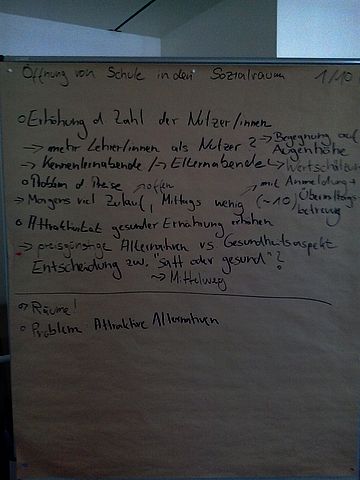 Öffnung von Schule in den Sozialraum 1/10
o Erhöhung d Zahl der Nutzer/innen
→ mehr Lehrer/innen als Nutzer? → Begegnung auf Augenhöhe
→ Kennenlernabende / → Elternabende → Wertschätzung
o Problem d Preise → offen → mit Anmeldung + Übermittagsbetreuung
→ Morgens viel Zulauf, Mittags wenig (~10)
o Attraktivität gesunder Ernährung erhöhen
→ preisgünstige Alternativen vs Gesundheitsaspekt
Entscheidung zw. "satt oder gesund"?
→ Mittelweg
o Räume!
o Problem: Attraktive Alternativen